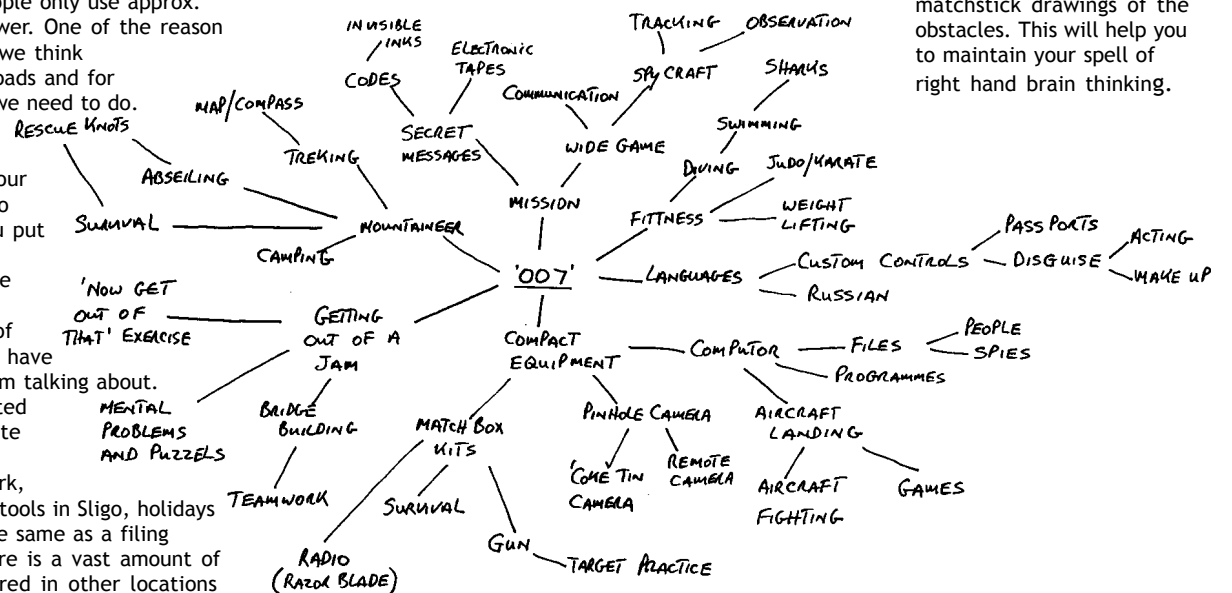 ople only use approx.
wer. One of the reason
we think
oads and for
we need to do.
our
o
u put
e
of
have
m talking about.
ted
te
rk,
tools in Sligo, holidays
e same as a filing
re is a vast amount of
red in other locations
matchstick drawings of the
obstacles. This will help you
to maintain your spell of
right hand brain thinking.
'007'
MISSION
SECRET
MESSAGES
CODES
INVISIBLE
INKS
ELECTRONIC
TAPES
WIDE GAME
COMMUNICATION
SPYCRAFT
TRACKING
OBSERVATION
FITTNESS
DIVING
SWIMMING
SHARKS
JUDO/KARATE
WEIGHT
LIFTING
LANGUAGES
CUSTOM CONTROLS
PASSPORTS
DISGUISE
ACTING
MAKE UP
RUSSIAN
COMPACT
EQUIPMENT
COMPUTOR
FILES
PEOPLE
SPIES
PROGRAMMES
AIRCRAFT
LANDING
AIRCRAFT
FIGHTING
GAMES
PINHOLE CAMERA
'COKE TIN
CAMERA
REMOTE
CAMERA
MATCH BOX
KITS
RADIO
(RAZOR BLADE)
SURVIVAL
GUN
TARGET PRACTICE
GETTING
OUT OF A
JAM
'NOW GET
OUT OF
THAT' EXERCISE
MENTAL
PROBLEMS
AND PUZZELS
BRIDGE
BUILDING
TEAMWORK
MOUNTAINEER
TREKING
MAP/COMPASS
ABSEILING
RESCUE KNOTS
SURVIVAL
CAMPING